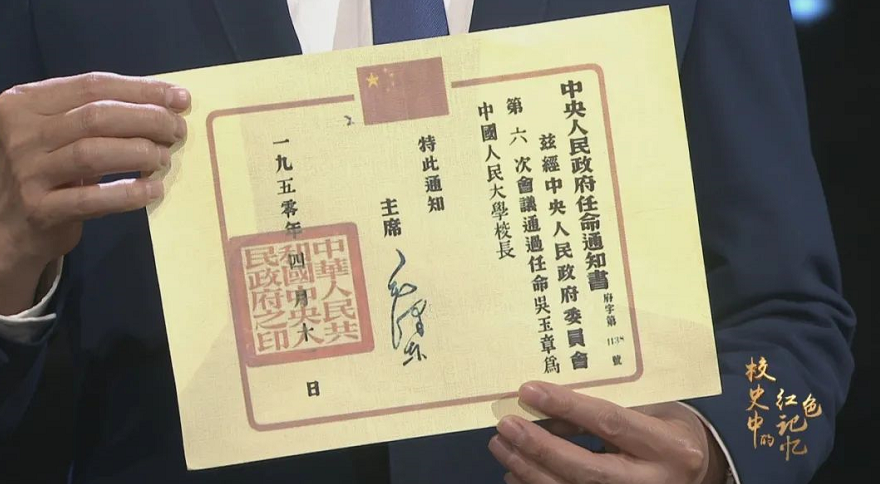 中央人民政府任命通知書
府字第1138號
茲經中央人民政府委員會
第六次會議通過任命吳玉章爲
中國人民大學校長
特此通知
主席 毛澤東
一九五零年四月 日
中華人民共
和國中央人
民政府之印
校史中的
红色记忆